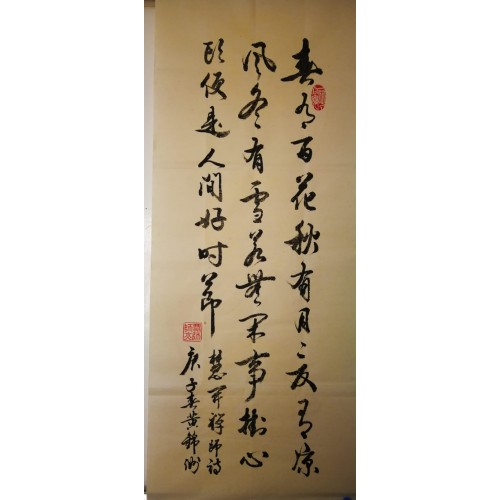 春有百花秋有月夏有凉
风冬有雪若無闲事掛心
头便是人间好时节
慧开禅师诗
庚子春黄锦